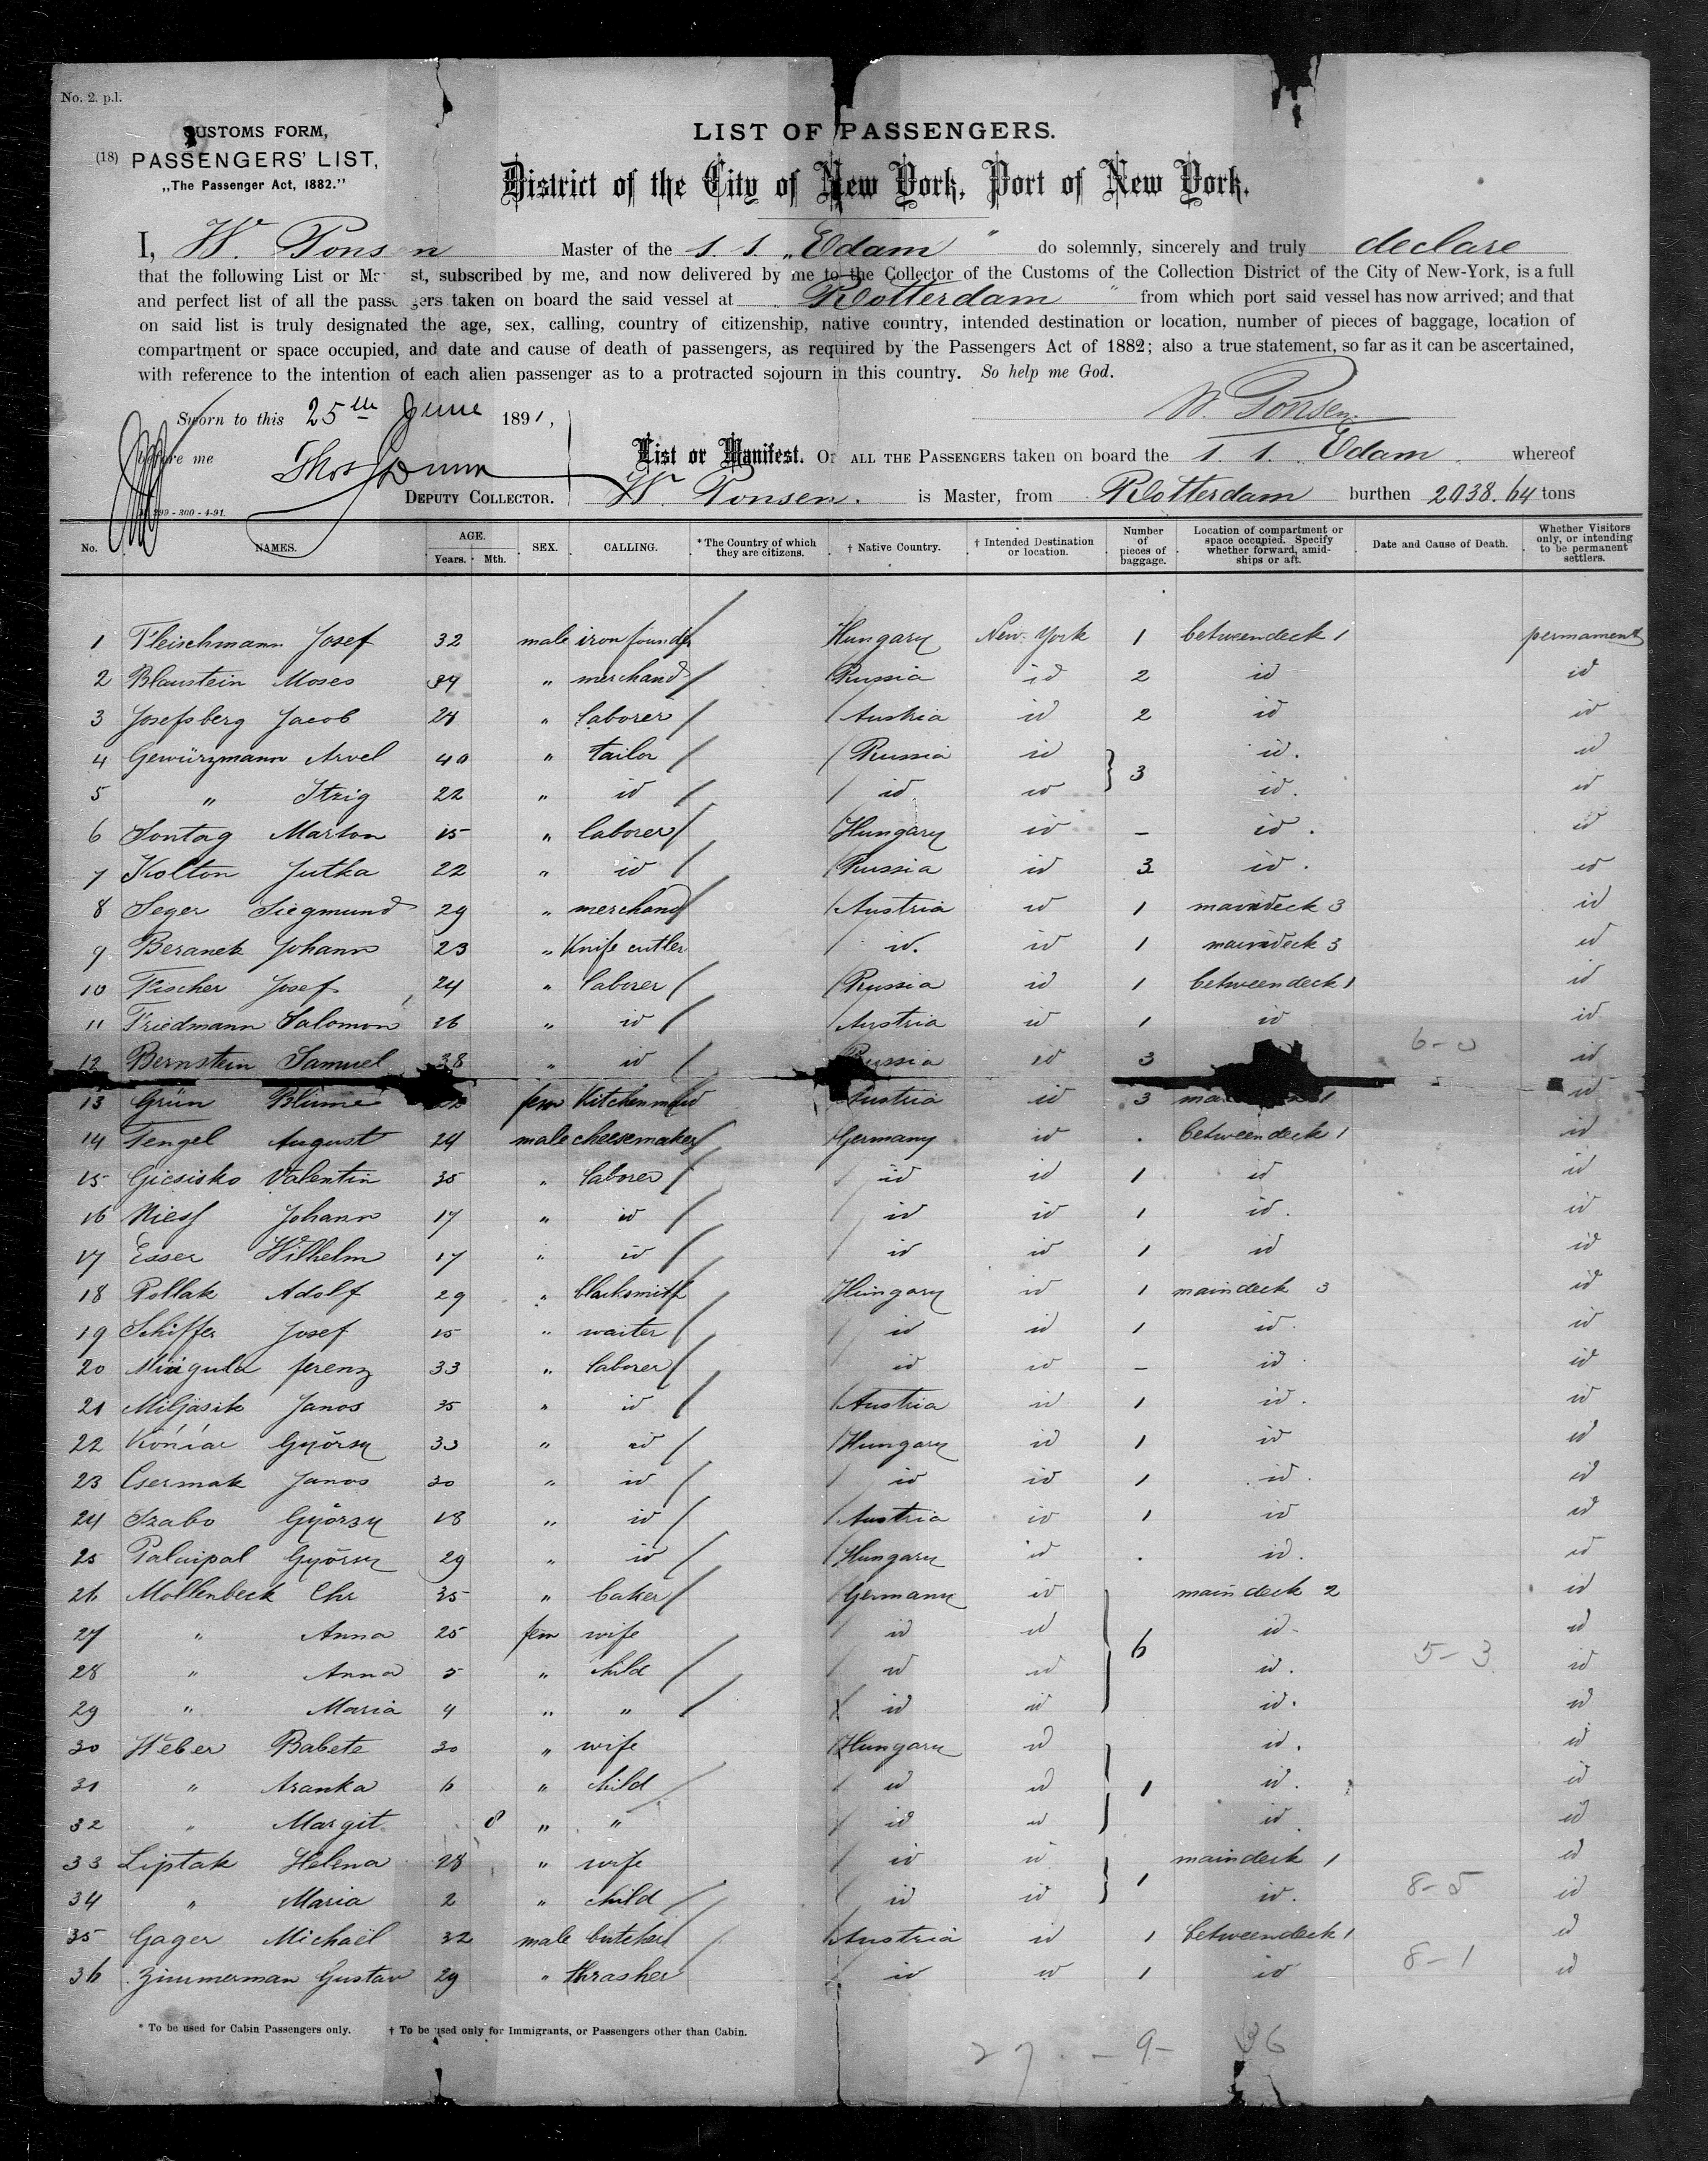 No. 2. p.l.
CUSTOMS FORM,
(18) PASSENGERS' LIST,
„The Passenger Act, 1882.”
LIST OF PASSENGERS.
District of the City of New York, Port of New York.
I, W. Ponsen Master of the S. S. „Edam" do solemnly, sincerely and truly declare
that the following List or Ma st, subscribed by me, and now delivered by me to the Collector of the Customs of the Collection District of the City of New-York, is a full
and perfect list of all the passe gers taken on board the said vessel at Rotterdam " from which port said vessel has now arrived; and that
on said list is truly designated the age, sex, calling, country of citizenship, native country, intended destination or location, number of pieces of baggage, location of
compartment or space occupied, and date and cause of death of passengers, as required by the Passengers Act of 1882; also a true statement, so far as it can be ascertained,
with reference to the intention of each alien passenger as to a protracted sojourn in this country. So help me God.
W. Ponsen.
Sworn to this 25th June 1891,
before me Thos Dunn
DEPUTY COLLECTOR.
List or Manifest. Of ALL THE PASSENGERS taken on board the S. S. Edam. whereof
W. Ponsen. is Master, from Rotterdam burthen 2938.64 tons
299 - 300 - 4-91.
No. NAMES. AGE. Years. Mth. SEX. CALLING. * The Country of which they are citizens. † Native Country. † Intended Destination or location. Number of pieces of baggage. Location of compartment or space occupied. Specify whether forward, amidships or aft. Date and Cause of Death. Whether Visitors only, or intending to be permanent settlers.
1 Fleischmann Josef 32 male iron founder Hungary New-York 1 betweendeck 1 permament
2 Blaustein Moses 34 " merchand Russia id 2 id id
3 Josefsberg Jacob 28 " laborer Austria id 2 id id
4 Gewürzmann Arvel 40 " tailor Russia id 3 id. id
5 " Itzig 22 " id id. id id. id
6 Sontag Marton 15 " laborer Hungary id – id. id
7 Kolton Jutka 22 " id Russia id 3 id. id
8 Seger Siegmund 29 " merchand Austria id 1 maindeck 3 id
9 Beranek Johann 23 " Knife cutler id. id 1 maindeck 3 id
10 Fischer Josef 24 " laborer Russia id 1 betweendeck 1 id
11 Friedmann Salomon 26 " id Austria id 1 id id
6-0
12 Bernstein Samuel 38 " id Russia id 3 id
13 Grün Blüme 22 fem Kitchenmaid Austria id 3 1 id
14 Tengel August 24 male cheesemaker Germany id . betweendeck 1 id
15 Gicsisko Valentin 35 " laborer id id 1 id id
16 Niess Johann 17 " id id id 1 id. id
17 Esser Wilhelm 17 " id id id 1 id id
18 Pollak Adolf 29 " blacksmith Hungary id 1 maindeck 3 id
19 Schiffer Josef 15 " waiter id id 1 id. id
20 Mingula ferenz 33 " laborer id id – id. id
21 Miljasik Janos 35 " id Austria id 1 id. id
22 Györsy 33 " id Hungary id 1 id id
23 Csermak Janos 30 " id id id 1 id. id
24 Szabo Györsy 18 " id Austria id 1 id id
25 Palaipal Györsy 29 " id Hungary id . id. id
26 Mollenbeck Chr 35 " baker Germany id maindeck 2 id
27 " Anna 25 fem wife id id 6 id. id
5-3
28 " Anna 5 " child id id id. id
29 " Maria 4 " " id id id. id
30 Weber Babete 30 " wife Hungary id id. id
31 " Aranka 6 " child id id 1 id. id
32 " Margit. 8 " " id id id. id
33 Liptak Helena 28 " wife id id maindeck 1 id
8-5
34 " Maria 2 " child id id 1 id. id
35 Gager Michaël 32 male butcher Austria id 1 betweendeck 1 id
8-1
36 Zimmerman Gustav 29 " thrasher id id 1 id id
* To be used for Cabin Passengers only. † To be used only for Immigrants, or Passengers other than Cabin.
27 – 9 – 36